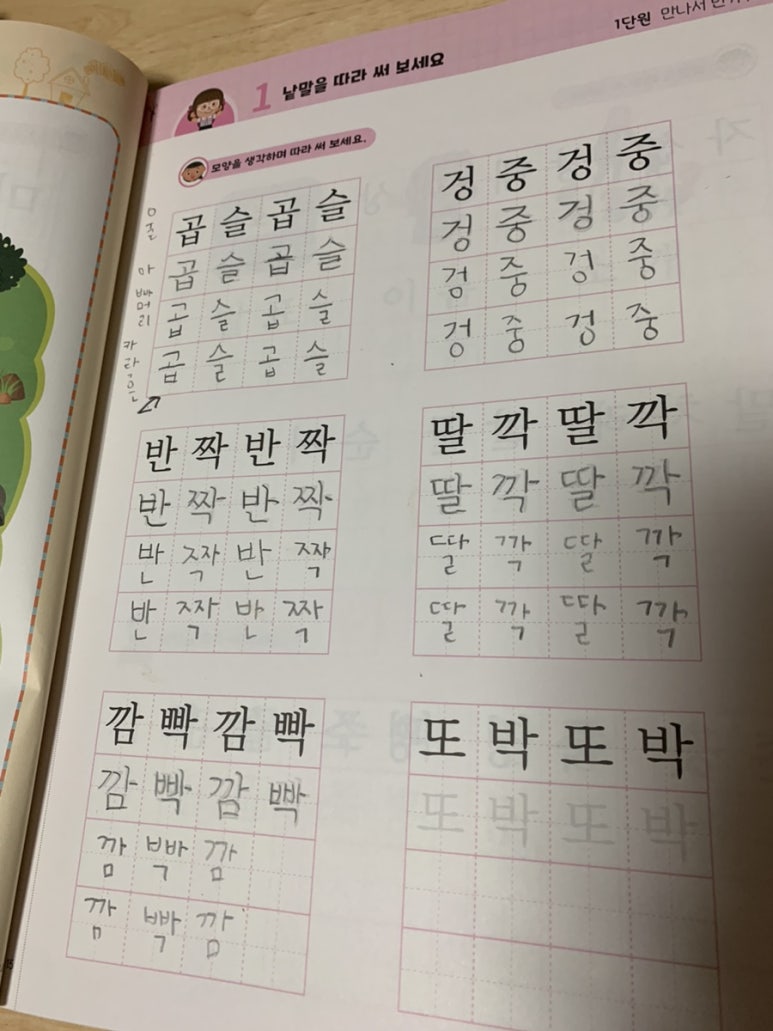 1단원 만나서 반가
1 낱말을 따라 써 보세요
모양을 생각하며 따라 써 보세요.
곱슬곱슬
곱슬곱슬
곱슬곱슬
곱슬곱슬
겅중겅중
겅중겅중
겅중겅중
겅중겅중
반짝반짝
반짝반짝
반짝반짝
반짝반짝
딸깍딸깍
딸깍딸깍
딸깍딸깍
딸깍딸깍
깜빡깜빡
깜빡깜빡
깜빡깜
깜빡깜
또박또박
또박또박